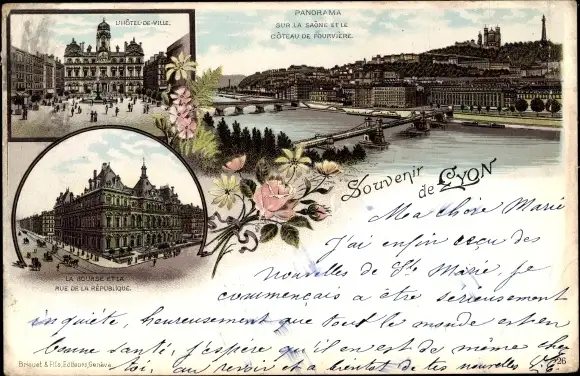 L'HÔTEL-DE-VILLE.
PANORAMA
SUR LA SAÔNE ET LE
CÔTEAU DE FOURVIÈRE.
Souvenir
de LYON
LA BOURSE ET LA
RUE DE LA RÉPUBLIQUE.
Ma chère Marie
J'ai enfin reçu des
nouvelles de Ste Marie, je
commençais a être serieusement
inquiète, heureusement que tout le monde est en
bonne santé, j'espère qu'il en est de même chez
toi, au revoir et a bientot de tes nouvelles
Briquet & Fils, Editeurs, Genève
26